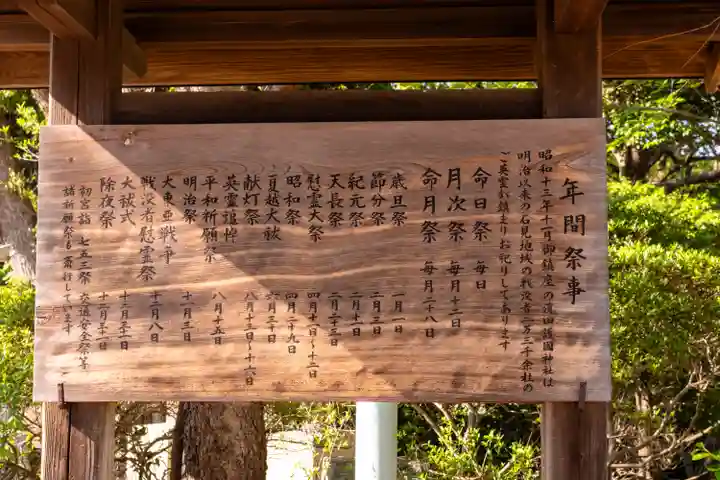 年間祭事
昭和十三年十一月御鎮座の濱田護國神社は
明治以来の石見地域の戦没者二万三千余柱の
ご英霊が鎮まりお祀りしてあります
命日祭 毎日
月次祭 毎月十二日
命月祭 毎月二十八日
歳旦祭 一月一日
節分祭 二月三日
紀元祭 二月十一日
天長祭 二月二十三日
慰霊大祭 四月十一日〜十二日
昭和祭 四月二十九日
夏越大祓 六月三十日
献灯祭 八月十三日〜十六日
英霊追悼
平和祈願祭 八月十五日
明治祭 十一月三日
大東亜戦争
戦没者慰霊祭 十二月八日
大祓式 十二月三十一日
除夜祭 十二月三十一日
初宮詣 七五三祭 交通安全祭等
諸祈願祭も斎行しています